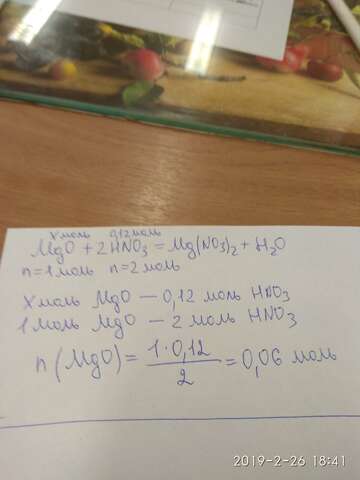 x моль 0,12 моль
MgO + 2HNO₃ = Mg(NO₃)₂ + H₂O
n=1 моль n=2 моль
X моль MgO — 0,12 моль HNO₃
1 моль MgO — 2 моль HNO₃
n(MgO) = 1·0,12 / 2 = 0,06 моль
2019-2-26 18:41